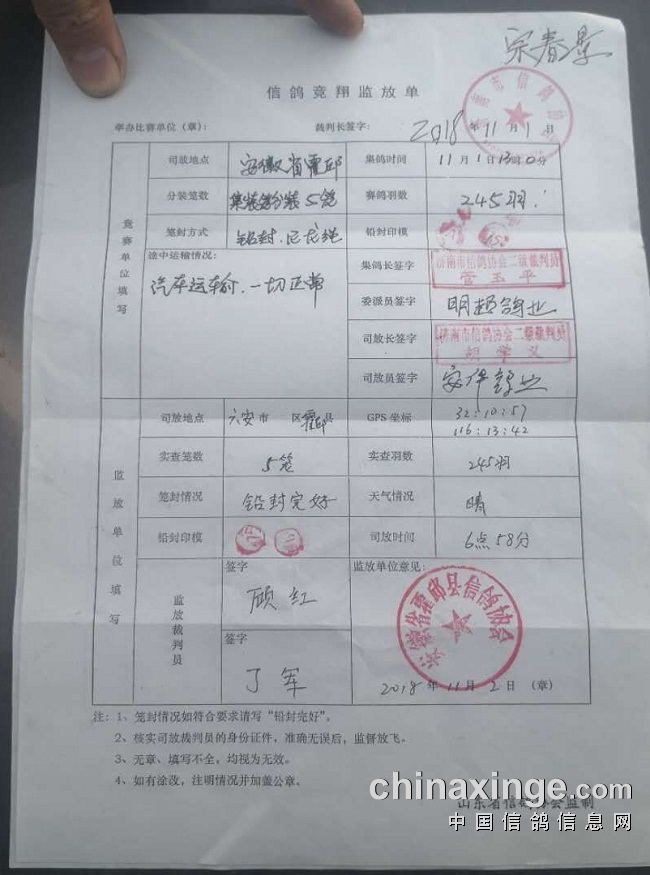 宗春景
信鸽竞翔监放单
举办比赛单位（章）： 裁判长签字： 2018年11月1日
竞赛单位填写
司放地点 安徽省霍邱 集鸽时间 11月1日13时0分
分装笼数 集装箱分装5笼 赛鸽羽数 245羽.
笼封方式 铅封.尼龙绳 铅封印模
途中运输情况： 集鸽长签字 济南市信鸽协会二级裁判员
管玉平
汽车运输.一切正常
委派员签字 明超鸽业
司放长签字 济南市信鸽协会二级裁判员
胡学义
司放员签字
监放单位填写
司放地点 六安市 区霍邱县 GPS 坐标 32:10:57
116:13:42
实查笼数 5笼 实查羽数 245羽
笼封情况 铅封完好 天气情况 晴
铅封印模 司放时间 6点58分
监放裁判员
签字 监放单位意见：
顾红
安徽省霍邱县信鸽协会
签字
丁军
2018年11月2日（章）
注：1、笼封情况如符合要求请写“铅封完好”。
2、核实司放裁判员的身份证件，准确无误后，监督放飞。
3、无章、填写不全，均视为无效。
4、如有涂改，注明情况并加盖公章。
山东省信鸽协会监制
chinaxinge.com
中国信鸽信息网